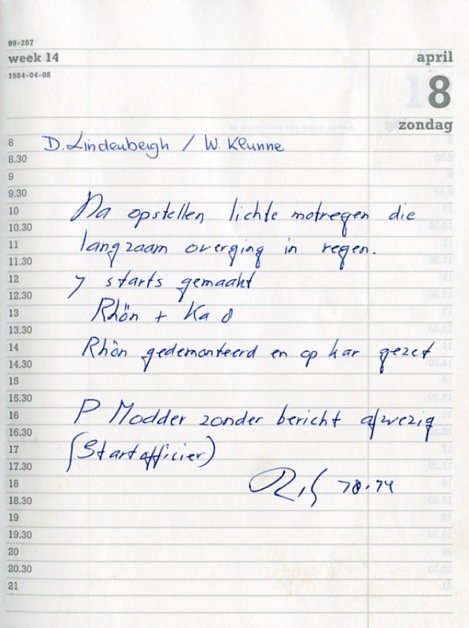 99-267
week 14
april
1984-04-08
8
zondag
8 D. Lindenbergh / W. Klunne
8.30
9
9.30
10 Na opstellen lichte motregen die
10.30
11 langzaam overging in regen.
11.30
12 7 starts gemaakt
12.30
13 Rhön + Ka 8
13.30
14 Rhön gedemonteerd en op kar gezet
14.30
15
15.30
16 P Modder zonder bericht afwezig
16.30
17 (Startofficier)
17.30
18
18.30
19
19.30
20
20.30
21